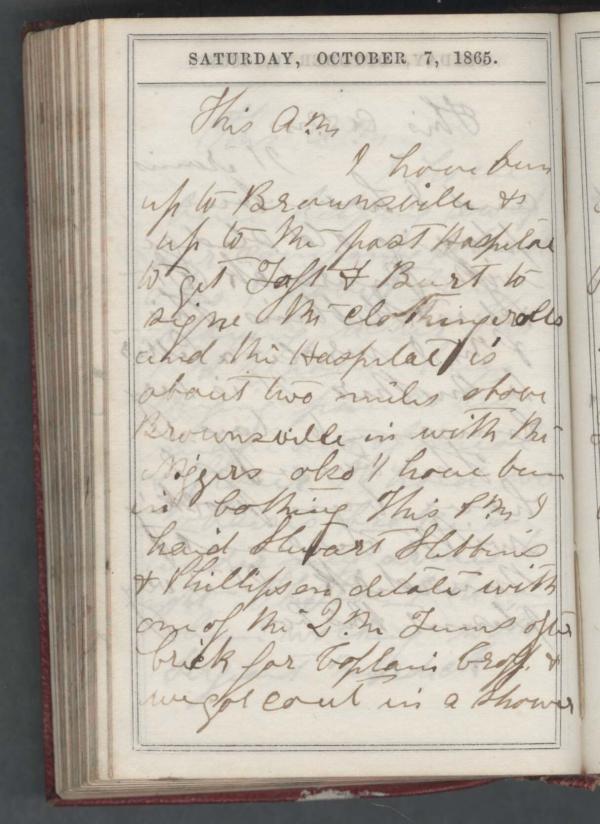 SATURDAY, OCTOBER 7, 1865.
This A.M.
I have bun
up to Brownsville &
up to the post Hospital
to get Taft & Burt to
signe the clothing rolls
and the Hospital is
about two miles above
Brownsville in with the
Negers also I have bun
in bathing This P.M. I
haid Stewart Stebbins
& Phillips on detale with
one of the Q.M. Teums after
brick for Captain Croft &
we got cout in a shower